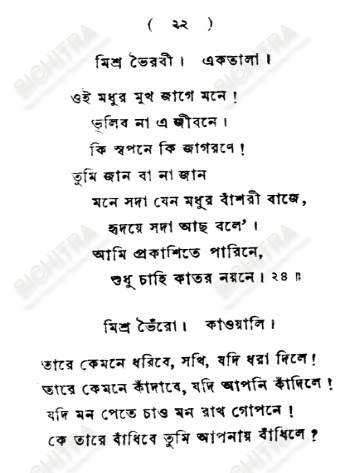 ( ২২ )
মিশ্র ভৈরবী। একতালা।
ওই মধুর মুখ জাগে মনে!
ভুলিব না এ জীবনে।
কি স্বপনে কি জাগরণে!
তুমি জান বা না জান
মনে সদা যেন মধুর বাঁশরী বাজে,
হৃদয়ে সদা আছ বলে'।
আমি প্রকাশিতে পারিনে,
শুধু চাহি কাতর নয়নে। ২৪॥
মিশ্র ভৈঁরো। কাওয়ালি।
তারে কেমনে ধরিবে, সখি, যদি ধরা দিলে!
তারে কেমনে কাঁদাবে, যদি আপনি কাঁদিলে!
যদি মন পেতে চাও মন রাখ গোপনে!
কে তারে বাঁধিবে তুমি আপনায় বাঁধিলে?
BICHITRA
BICHITRA
BICHITRA
BICHITRA